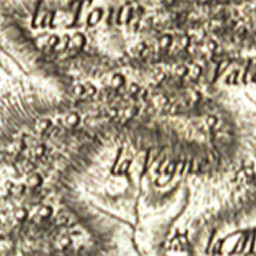 la Tour
Val
la Vigne
la M